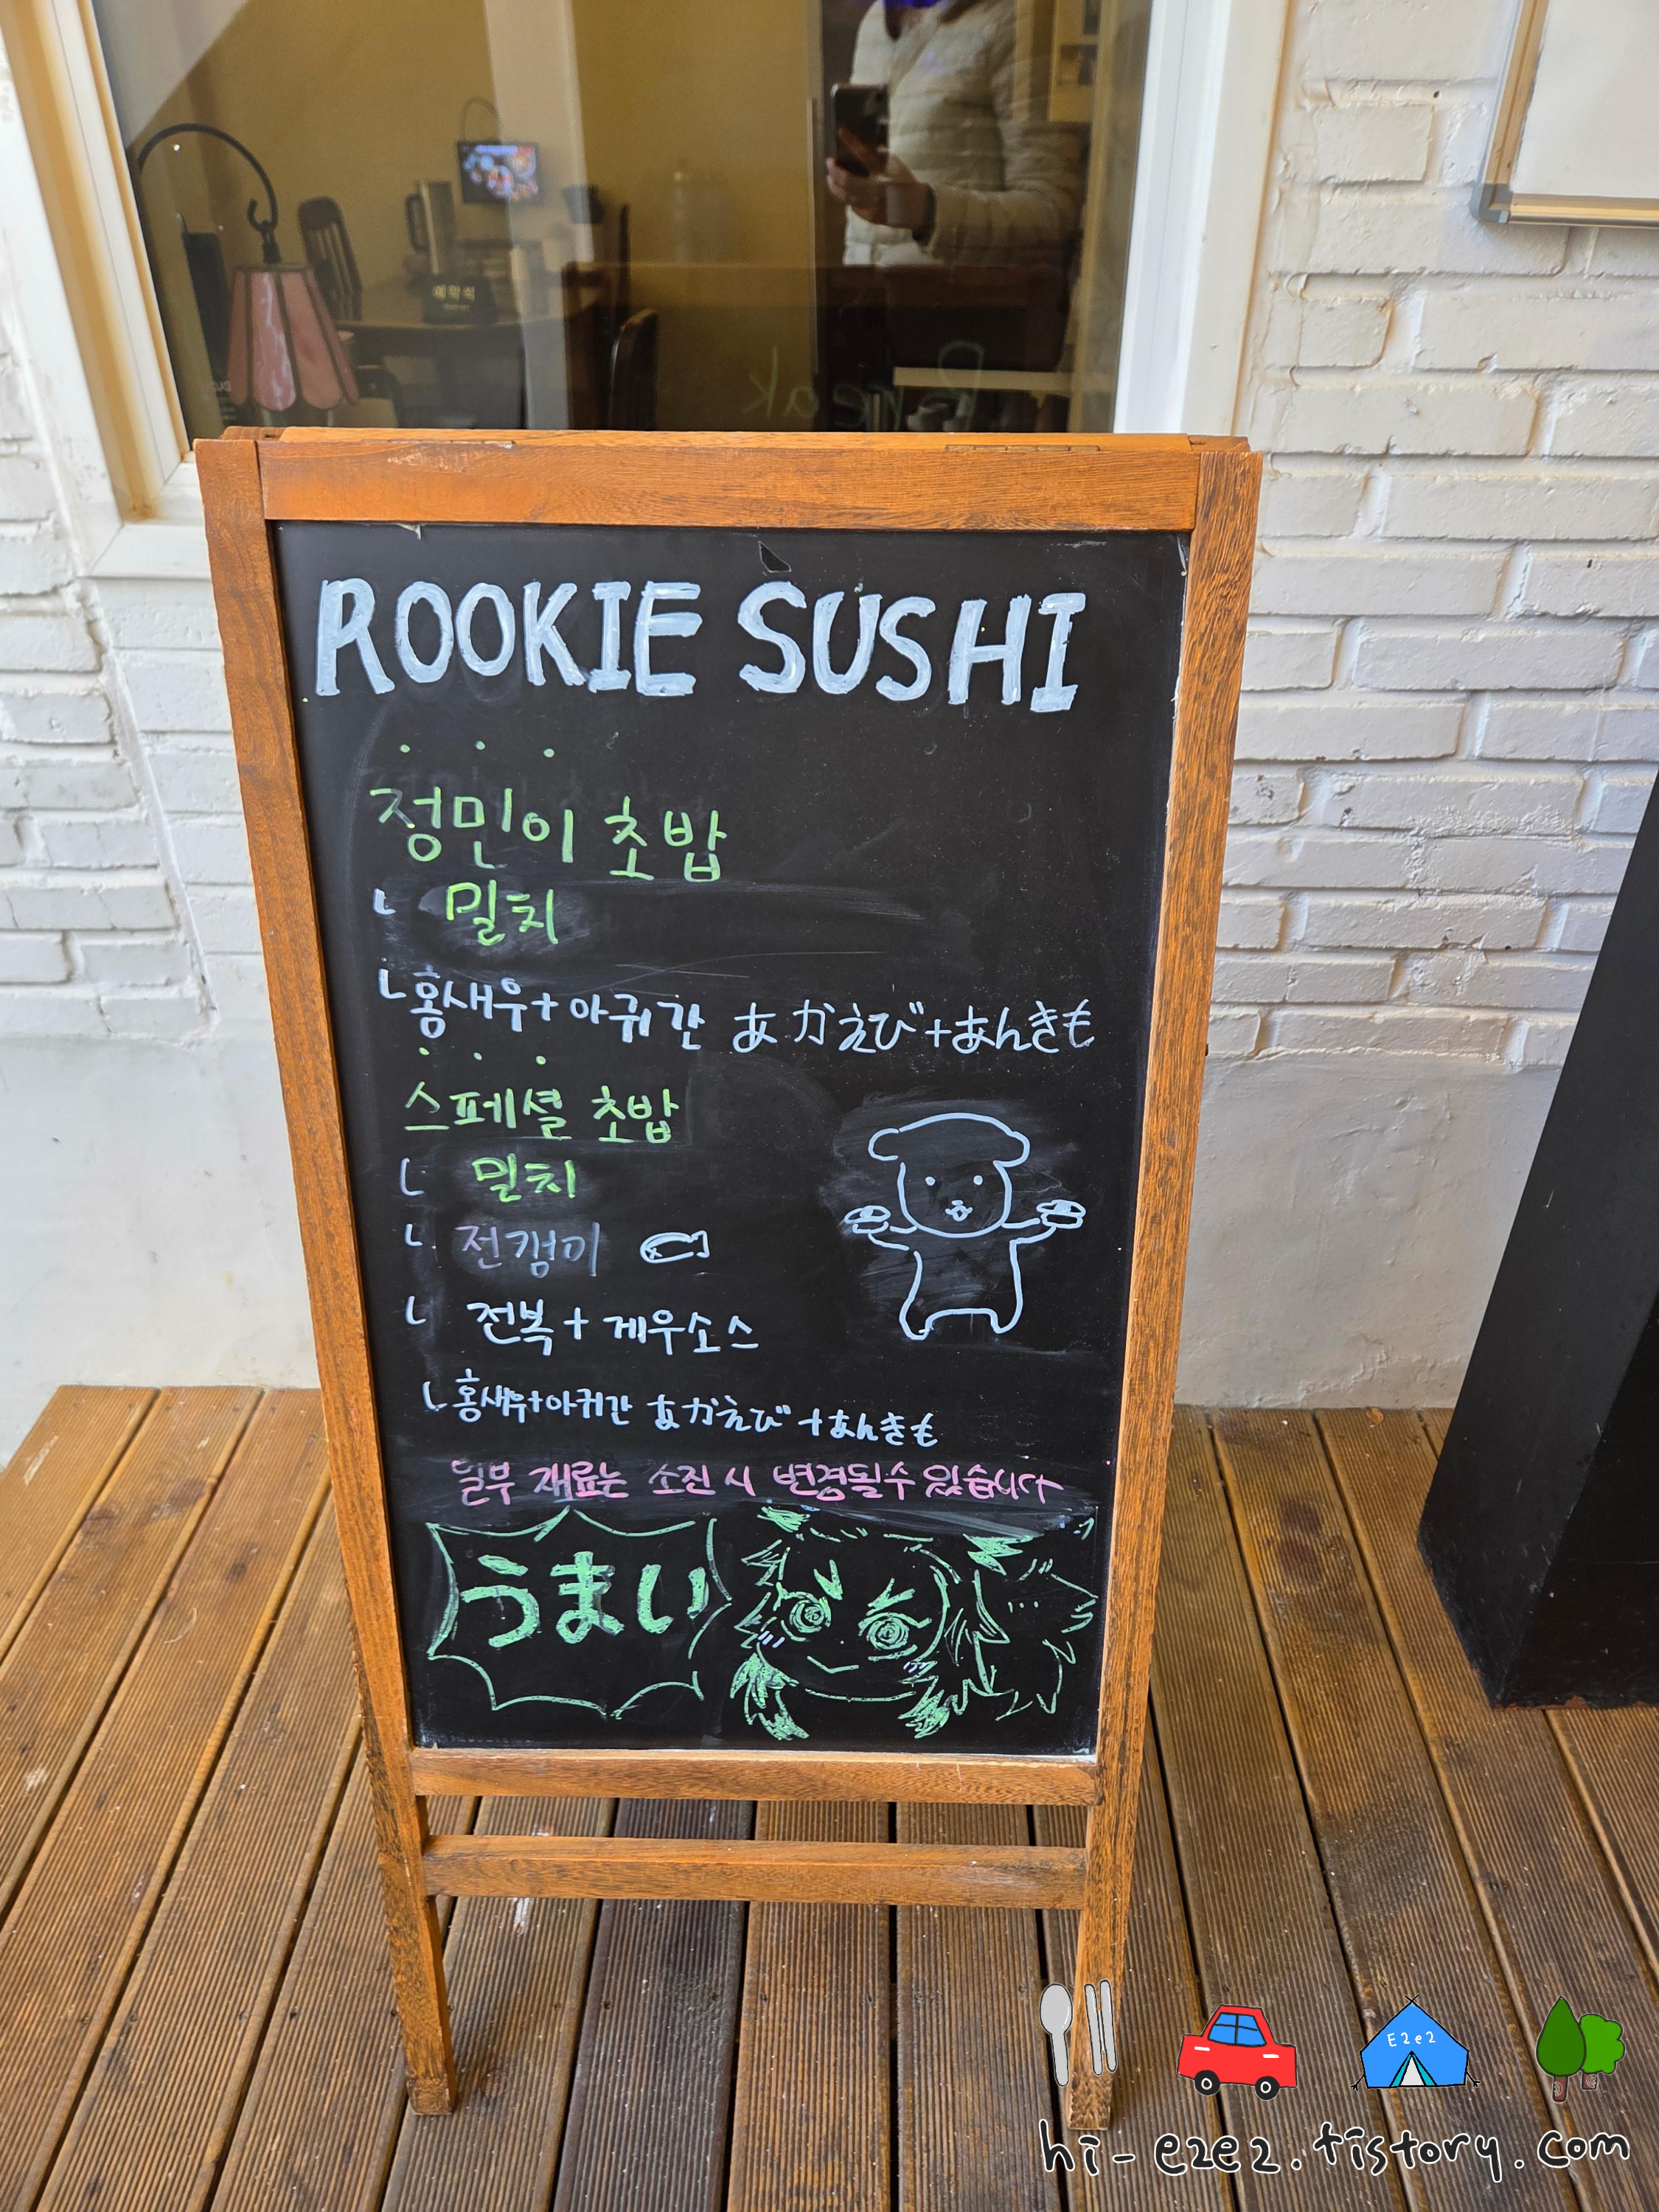 예약석
Break
ROOKIE SUSHI
정민이 초밥
ㄴ 밀치
ㄴ홍새우+아귀간 あかえび+あんきも
스페셜 초밥
ㄴ 밀치
ㄴ 전갱이
ㄴ 전복+게우소스
ㄴ홍새우+아귀간 あかえび+あんきも
일부 재료는 소진 시 변경될수 있습니다
うまい
E2e2
hi-e2e2.tistory.com